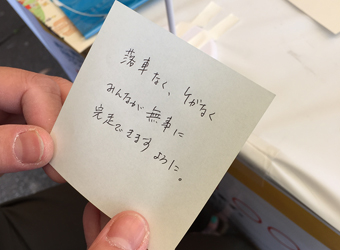 落車なく、けがなく
みんなが無事に
完走できますように。